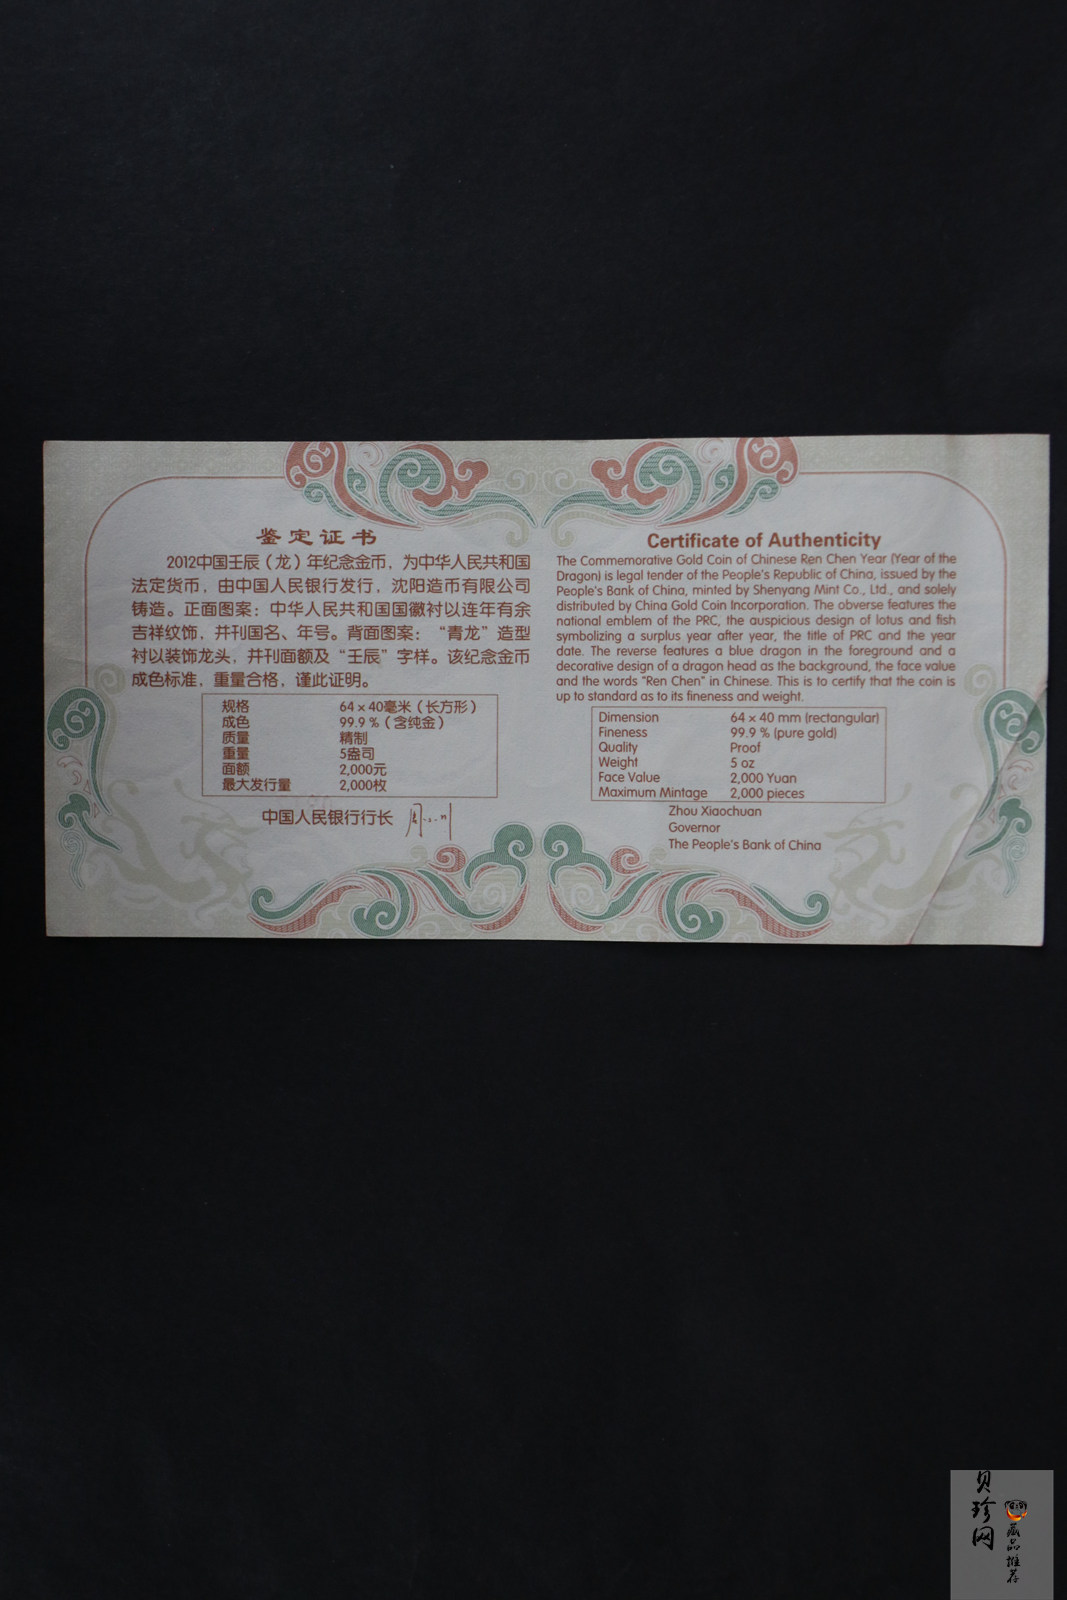 鉴定证书
2012中国壬辰（龙）年纪念金币，为中华人民共和国
法定货币，由中国人民银行发行，沈阳造币有限公司
铸造。正面图案：中华人民共和国国徽衬以连年有余
吉祥纹饰，并刊国名、年号。背面图案：“青龙”造型
衬以装饰龙头，并刊面额及“壬辰”字样。该纪念金币
成色标准，重量合格，谨此证明。
规格 64×40毫米（长方形）
成色 99.9％（含纯金）
质量 精制
重量 5盎司
面额 2,000元
最大发行量 2,000枚
中国人民银行行长
Certificate of Authenticity
The Commemorative Gold Coin of Chinese Ren Chen Year (Year of the
Dragon) is legal tender of the People's Republic of China, issued by the
People's Bank of China, minted by Shenyang Mint Co., Ltd., and solely
distributed by China Gold Coin Incorporation. The obverse features the
national emblem of the PRC, the auspicious design of lotus and fish
symbolizing a surplus year after year, the title of PRC and the year
date. The reverse features a blue dragon in the foreground and a
decorative design of a dragon head as the background, the face value
and the words "Ren Chen" in Chinese. This is to certify that the coin is
up to standard as to its fineness and weight.
Dimension 64×40 mm (rectangular)
Fineness 99.9 % (pure gold)
Quality Proof
Weight 5 oz
Face Value 2,000 Yuan
Maximum Mintage 2,000 pieces
Zhou Xiaochuan
Governor
The People's Bank of China
贝珍网
藏品推荐